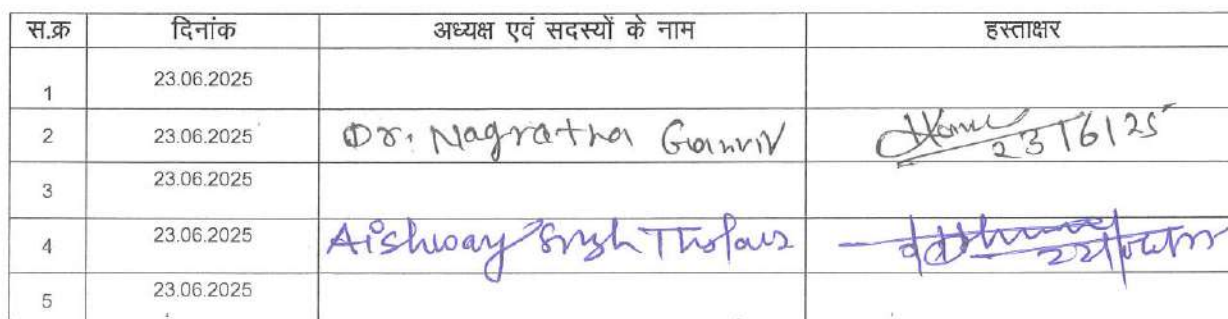 स.क्र दिनांक अध्यक्ष एवं सदस्यों के नाम हस्ताक्षर
1 23.06.2025
2 23.06.2025 Dr. Nagratna 23/6/25
3 23.06.2025
4 23.06.2025 Singh
5 23.06.2025